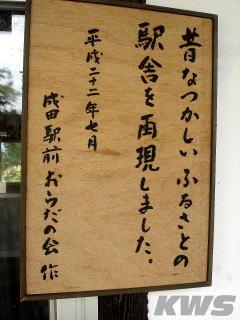 昔なつかしいふるさとの
駅舎を再現しました。
平成二十二年七月
成田駅前おらだの会 作
KWS